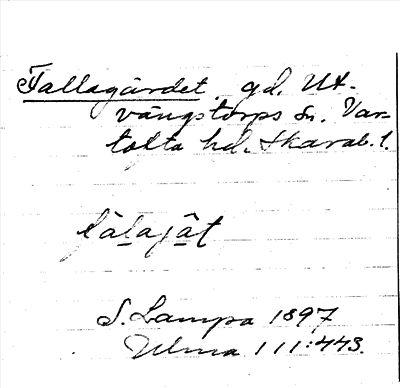 Fallagärdet, gd. Ut-
vängstorps sn. Var-
tofta hd. Skarab. l.
fälajät
S. Lampa 1897
Ulma 111:443.